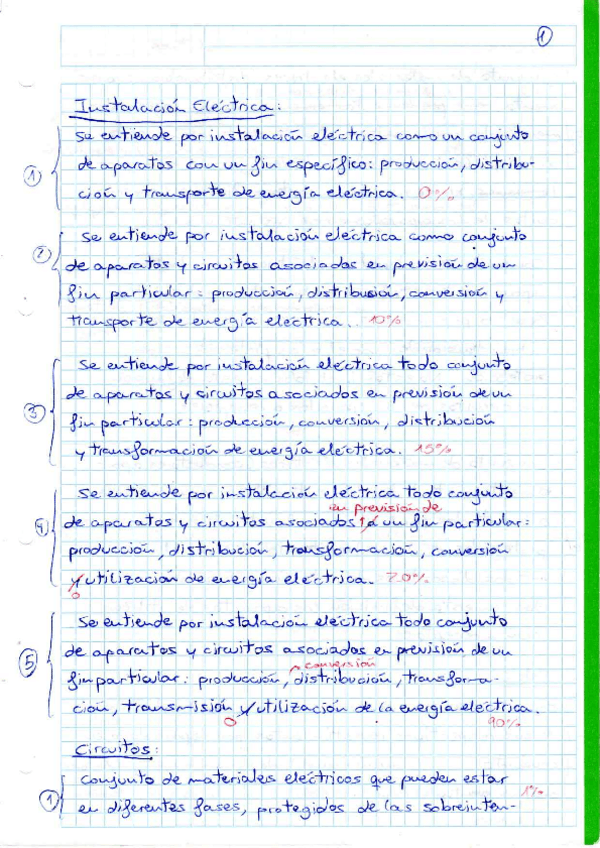 1
Instalación Eléctrica:
Se entiende por instalación eléctrica como un conjunto
1) de aparatos con un fin específico: producción, distribu-
ción y transporte de energía eléctrica. 0%
Se entiende por instalación eléctrica como conjunto
2) de aparatos y circuitos asociados en previsión de un
fin particular: producción, distribución, conversión y
transporte de energía eléctrica. 10%
Se entiende por instalación eléctrica todo conjunto
de aparatos y circuitos asociados en previsión de un
3) fin particular: producción, conversión, distribución
y transformación de energía eléctrica. 15%
Se entiende por instalación eléctrica todo conjunto
en previsión de
4) de aparatos y circuitos asociados a un fin particular:
producción, distribución, transformación, conversión
y utilización de energía eléctrica. 20%
o
Se entiende por instalación eléctrica todo conjunto
de aparatos y circuitos asociados en previsión de un
conversión
5) fin particular: producción, distribución, transforma-
ción, transmisión y utilización de la energía eléctrica.
o 90%
Circuitos:
Conjunto de materiales eléctricos que pueden estar
1) en diferentes fases, protegidos de las sobreinten- 1%